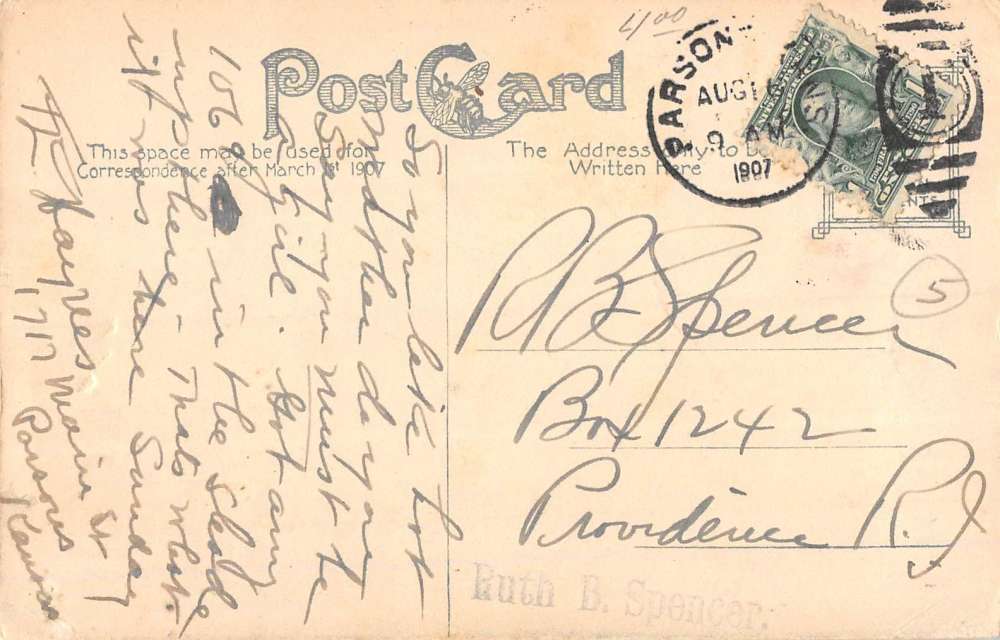 4/00
Post Card
This space may be used for
Correspondence after March 1st 1907
The Address Only to be
Written Here
PARSONS
AUG 16
9 AM
1907
So you like hot
weather do you
Say you must be
a girl. Got any
106° in the shade
up there - Thats what
it was here Sunday
Haynes
1717 Main St
Parsons
Kansas
R B Spencer
Box 1242
Providence R.I
5
Ruth B. Spencer.